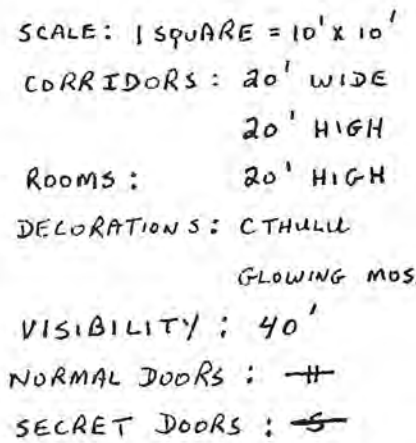 SCALE: 1 SQUARE = 10' X 10'
CORRIDORS: 20' WIDE
20' HIGH
ROOMS: 20' HIGH
DECORATIONS: CTHULU
GLOWING MOS
VISIBILITY: 40'
NORMAL DOORS:
SECRET DOORS: S